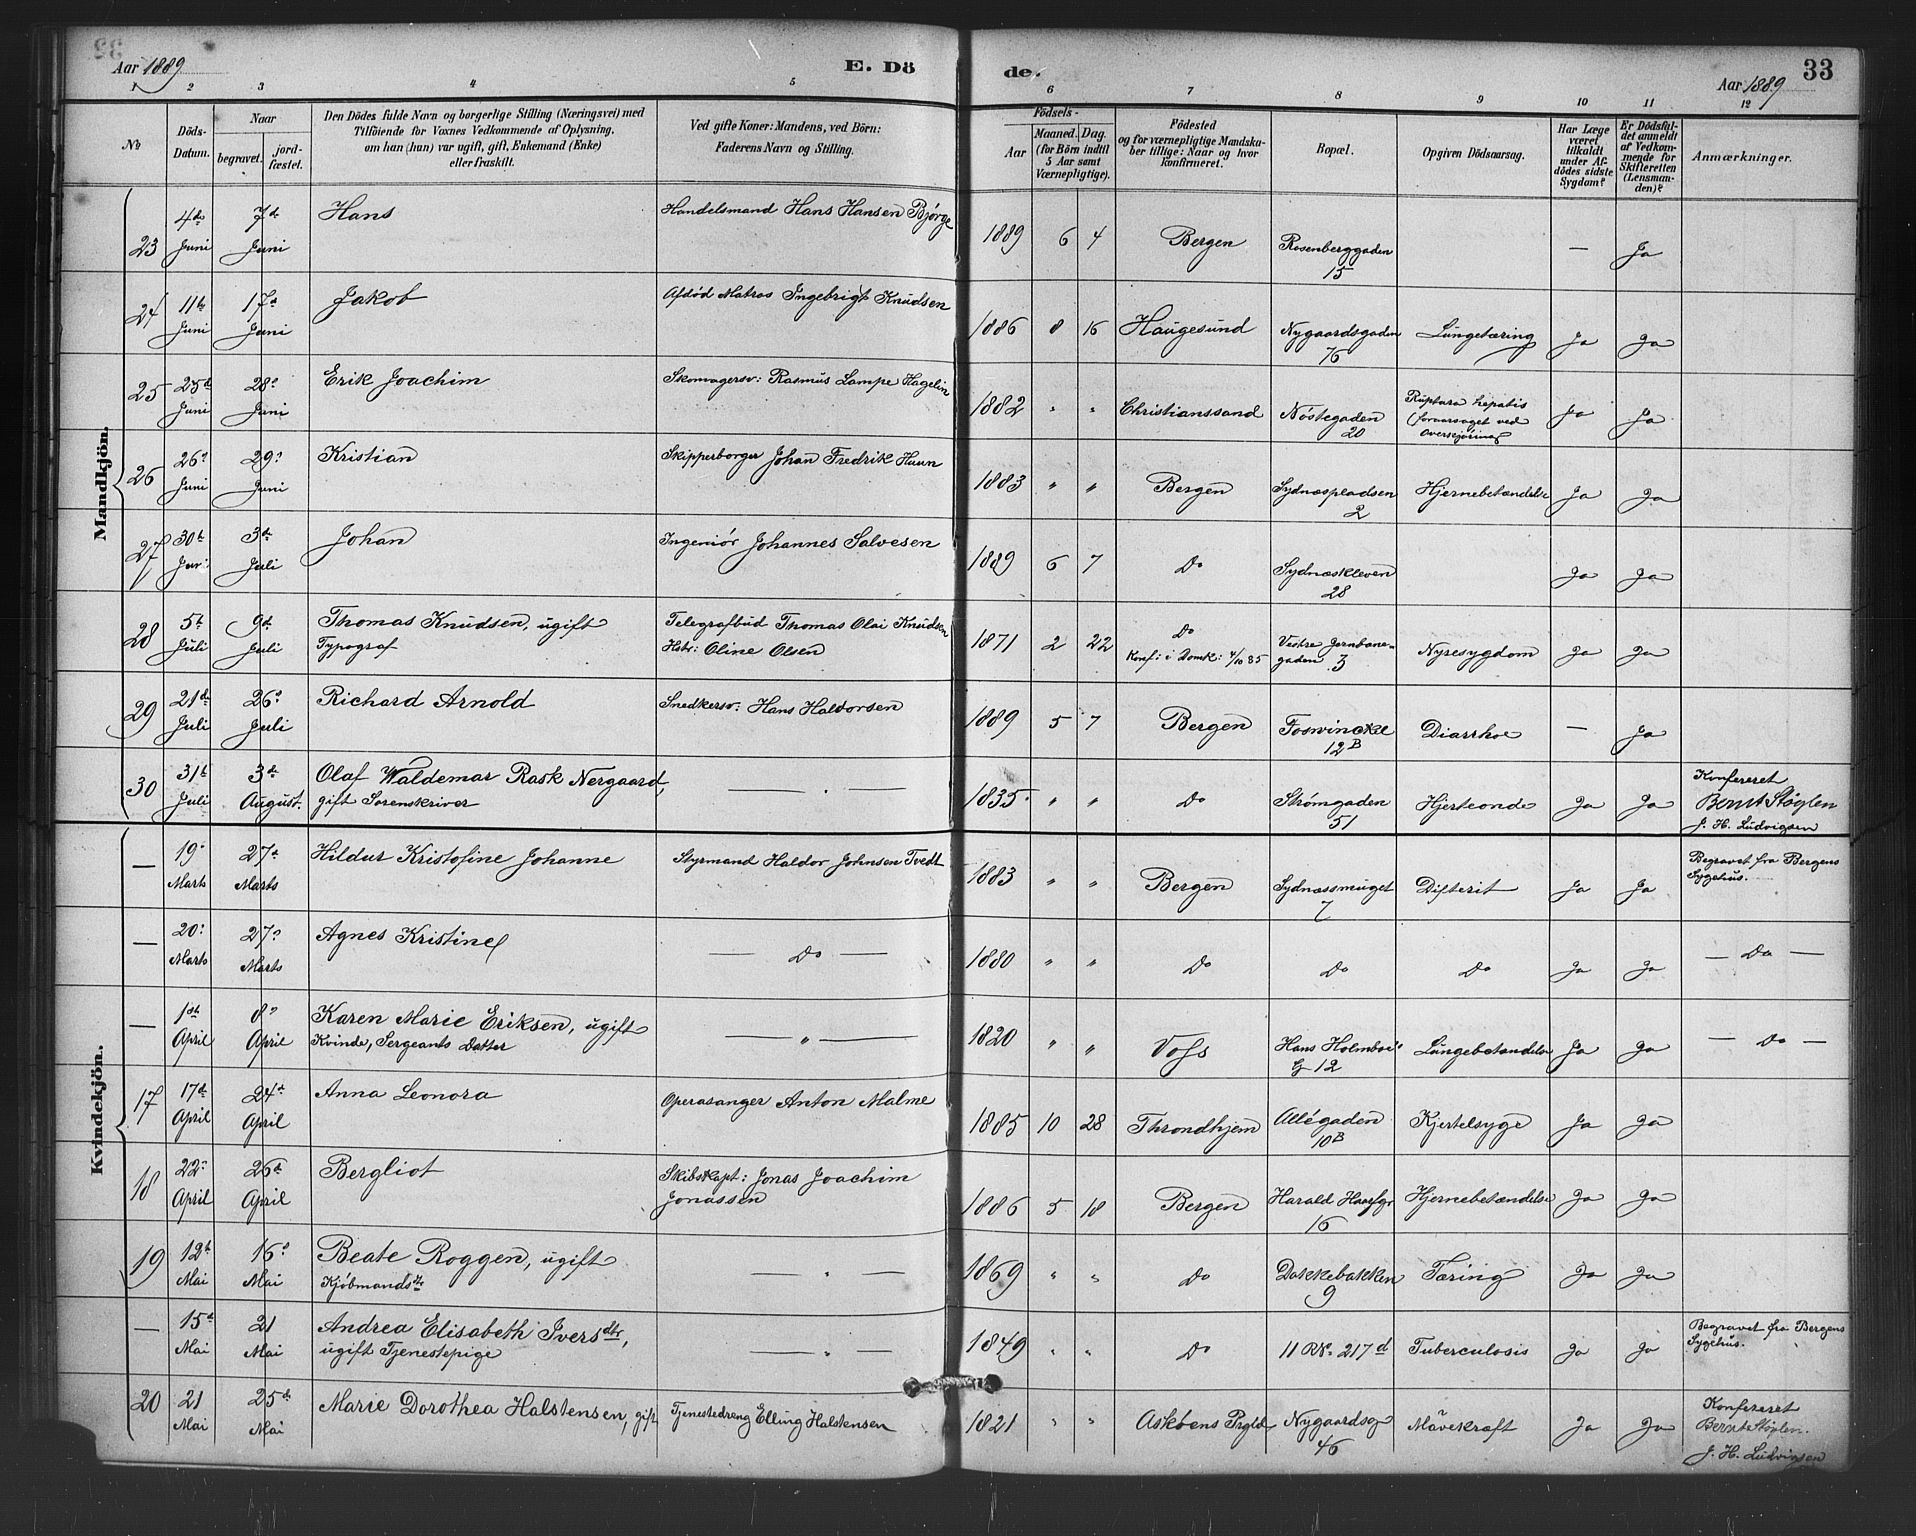 Aar 1889
E. Dö
de.
33
Aar 1889
1 2 3 4 5 6 7 8 9 10 11 12
No
Döds-Datum.
Naar
begravet.
jord-fæstet.
Den Dödes fulde Navn og borgerlige Stilling (Næringsvei) med
Tilföiende for Voxnes Vedkommende af Oplysning,
om han (hun) var ugift, gift, Enkemand (Enke)
eller fraskilt.
Ved gifte Koner: Mandens, ved Börn:
Faderens Navn og Stilling.
Födsels-
Aar
Maaned. Dag.
(for Börn indtil
5 Aar samt
Værnepligtige).
Födested
og for værnepligtige Mandska-
ber tillige: Naar og hvor
konfirmeret.
Bopæl.
Opgiven Dödsaarsag.
Har Læge
været
tilkaldt
under Af-
dödes sidste
Sygdom?
Er Dödsfal-
det anmeldt
af Vedkom-
mende for
Skifteretten
(Lensman-
den)?
Anmærkninger.
Mandkjön.
23 4de Juni 7de Juni Hans Handelsmand Hans Hansen Bjørge 1889 6 4 Bergen Rosenberggaden 15 — Ja
24 11te Juni 17de Juni Jakob Afdød Matros Ingebrigt Knudsen 1886 8 16 Haugesund Nygaardsgaden 76 Lungetæring Ja Ja
25 25de Juni 28de Juni Erik Joachim Skomagersv: Rasmus Lampe Hagelin 1882 " " Christianssand Nøstegaden 20 Ruptura hepatis (foraarsaget ved Overkjøring Ja Ja
26 26de Juni 29de Juni Kristian Skipperborger Johan Fredrik Huun 1883 " " Bergen Sydnæspladsen 2 Hjernebetændelse Ja Ja
27 30te Jun: 3de Juli Johan Ingeniør Johannes Salvesen 1889 6 7 Do Sydnæskleven 28 Ja Ja
28 5te Juli 9de Juli Thomas Knudsen, ugift Typograf Telegrafbud Thomas Olai Knudsen Hstr: Oline Olsen 1871 2 22 Do Konf: i Domk: 4/10 85 Vestre Jernbane-gaden 3 Nyresygdom Ja Ja
29 21de Juli 26de Juli Richard Arnold Snedkersv: Hans Haldorsen 1889 5 7 Bergen Foswinckel 12B Diarrhoe — Ja
30 31te Juli 3de August. Olaf Waldemar Rask Nergaard, gift Sorenskriver — " — 1835 " " Do Strømgaden 51 Hjerteonde Ja Ja Konfereret Bernt Støylen J. H. Ludvigsen
Kvindekjön.
— 19de Marts 27de Marts Hildur Kristofine Johanne Styrmand Haldor Johnsen Tvedt 1883 " " Bergen Sydnæssmuget 7 Difterit Ja Ja Begravet fra Bergens Sygehus.
— 20de Marts 27de Marts Agnes Kristine — Do — 1880 " " Do Do Do Ja Ja — Do —
— 1ste April 8de April Karen Marie Eriksen, ugift Kvinde, Sergeants Datter — " — 1820 " " Voss Hans Holmboes G 12 Lungebetændelse Ja Ja — Do —
17 17de April 24de April Anna Leonora Operasanger Anton Malme 1885 10 28 Throndhjem Allégaden 10B Kjertelsyge Ja Ja
18 22de April 26de April Bergliot Skibskapt: Jonas Joachim Jonassen 1886 5 18 Bergen Harald Haarfgr 16 Hjernebetændelse Ja Ja
19 12te Mai 16de Mai Beate Roggen, ugift Kjøbmandsdtr — " — 1869 " " Do Dokkebakken 9 Tæring Ja Ja
— 15de Mai 21 Mai Andrea Elisabeth Iversdtr, ugift Tjenestepige — " — 1849 " " Do 11 RNo 217d Tuberculosis Ja Ja Begravet fra Bergens Sygehus.
20 21 Mai 25de Mai Marie Dorothea Halstensen, gift Tjenestedreng Elling Halstensen 1821 " " Askøens Prgld Nygaardsg 46 Mavekræft Ja Ja Konfereret Bernt Støylen. J. H. Ludvigsen